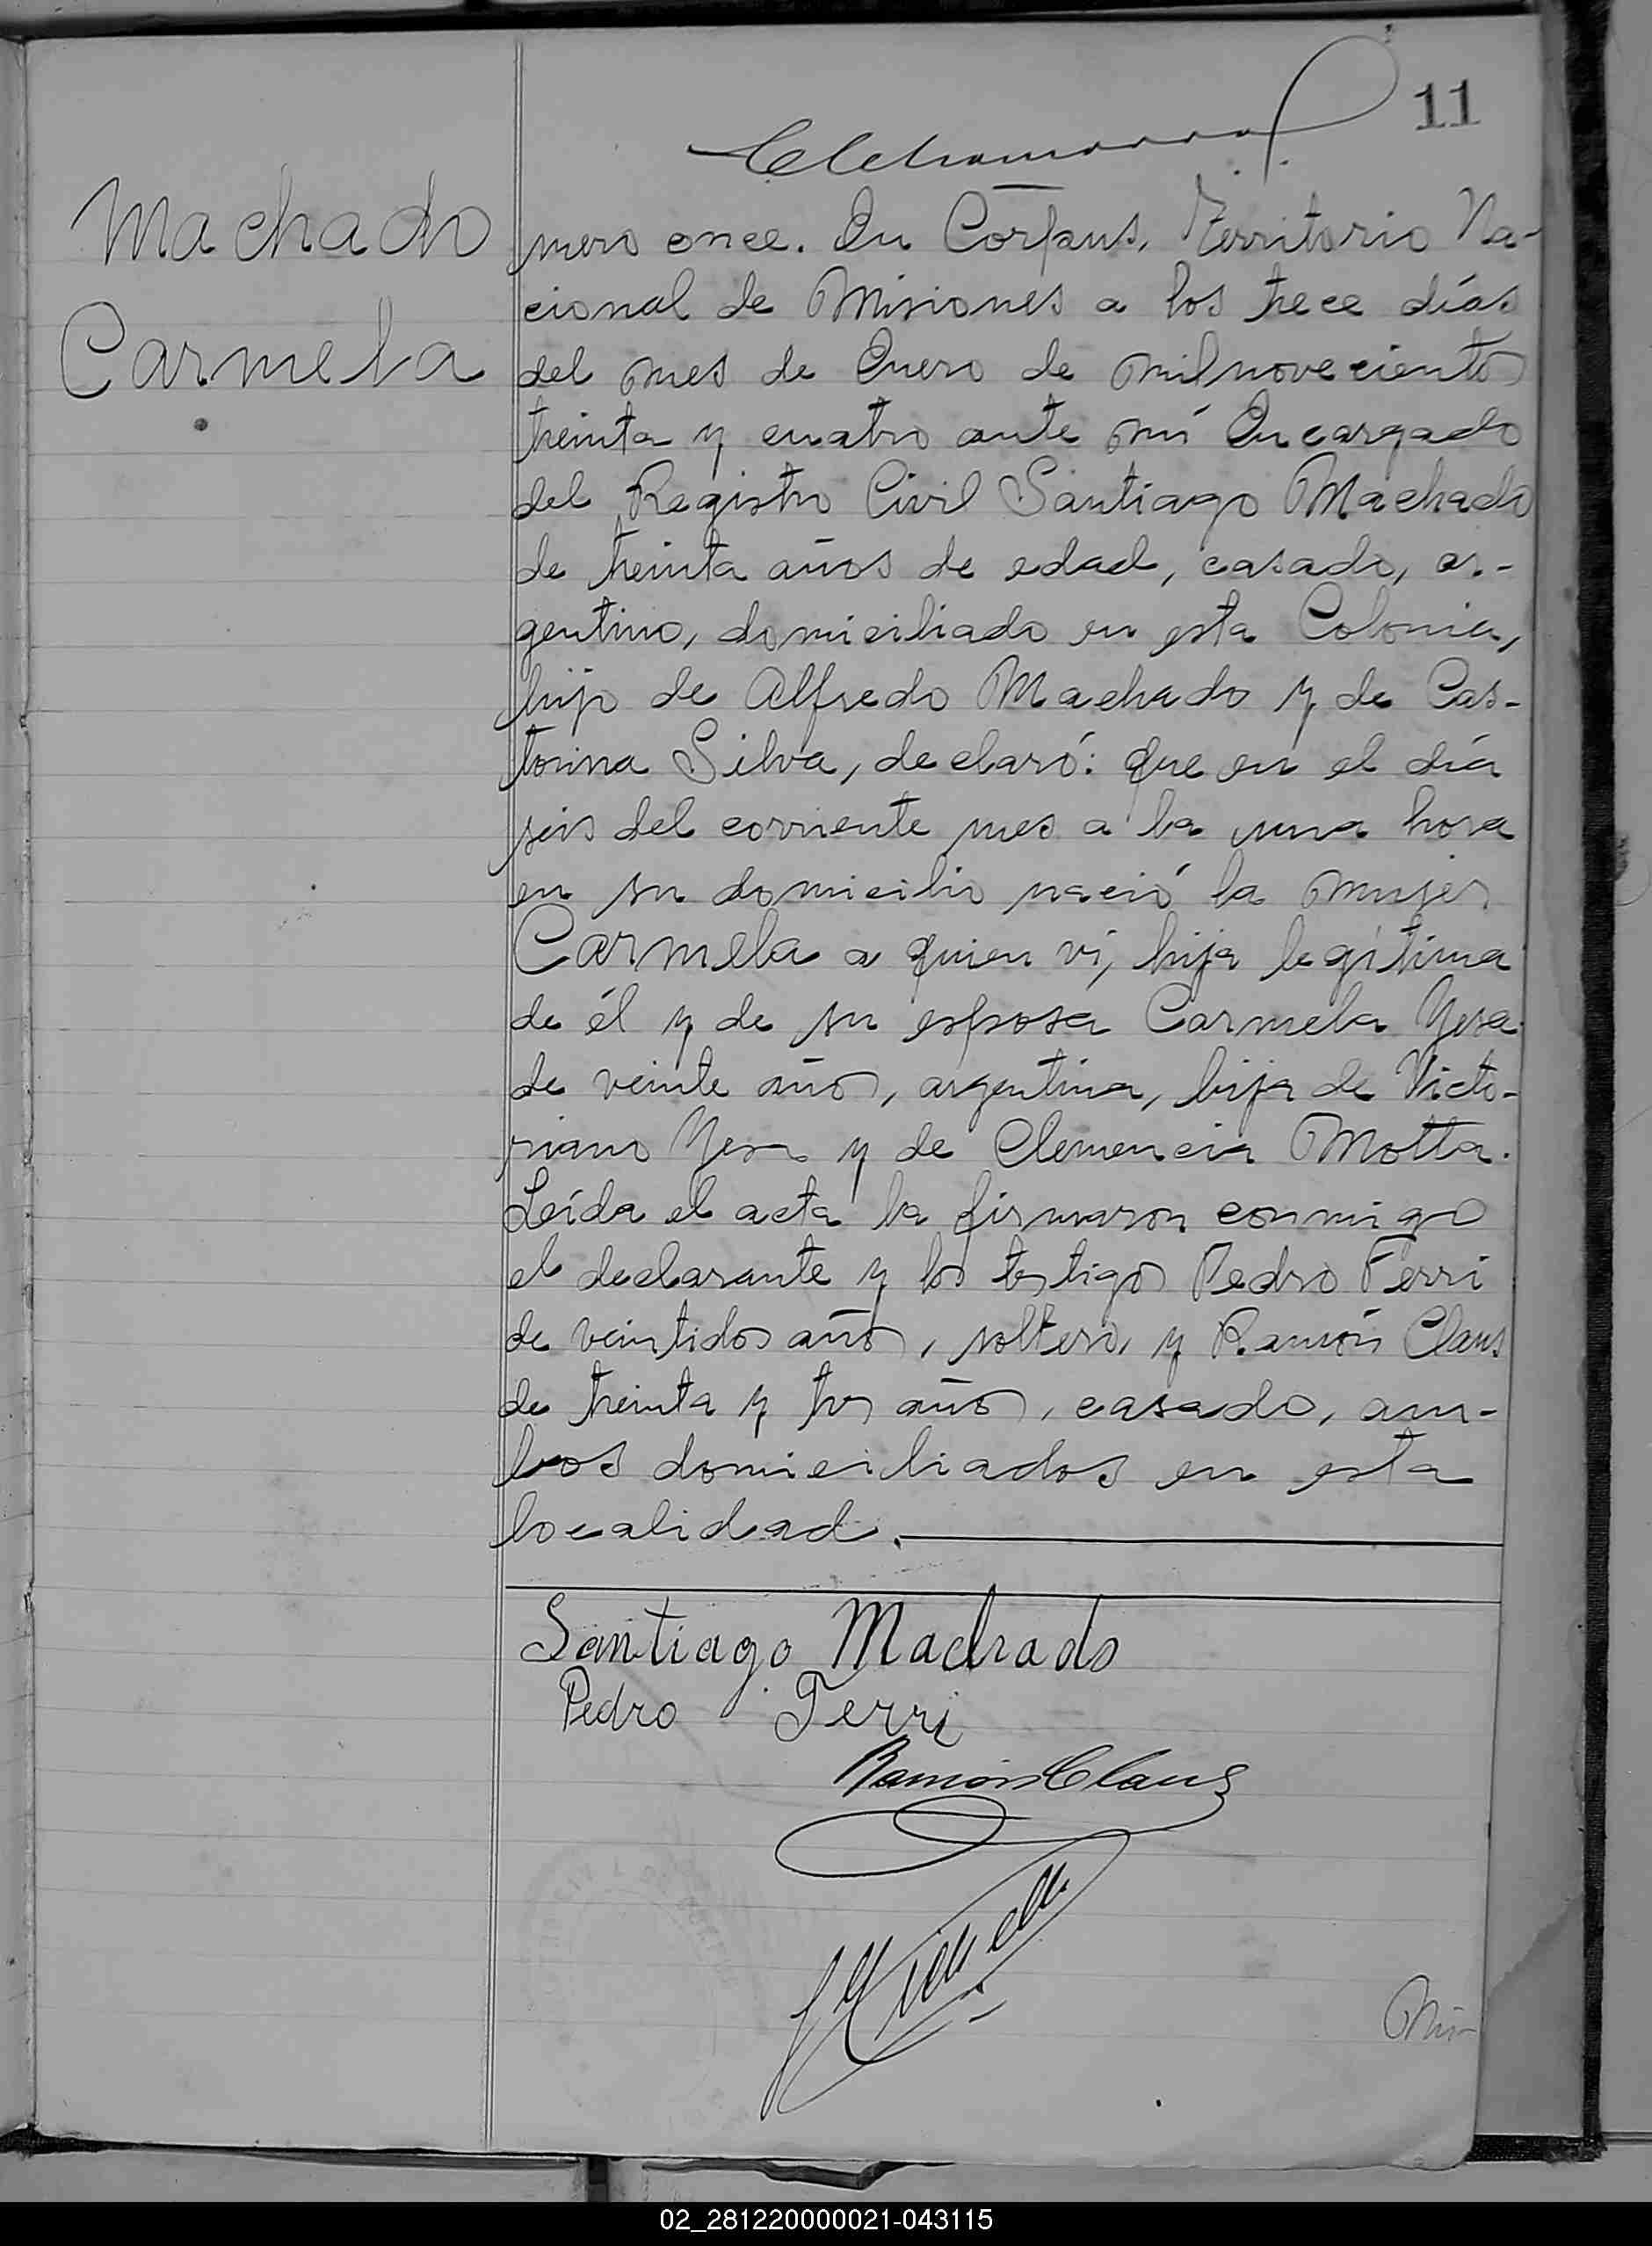 11
Machado
Carmela
mero once. En Corpus, Territorio Na-
cional de Misiones a los trece días
del mes de Enero de mil novecientos
treinta y cuatro ante mí Encargado
del Registro Civil Santiago Machado
de treinta años de edad, casado, ar-
gentino, domiciliado en esta Colonia,
hijo de Alfredo Machado y de Cas-
torina Silva, declaró: que en el día
seis del corriente mes a la una hora
en su domicilio nació la mujer
Carmela a quien vi, hija legítima
de él y de su esposa Carmela Yesa
de veinte años, argentina, hija de Victo-
riano Yesa y de Clemencia Motta.
Leída el acta la firmaron conmigo
el declarante y los testigos Pedro Ferri
de veintidos años, soltero, y Ramón Claus
de treinta y tres años, casado, am-
bos domiciliados en esta
localidad.
Santiago Machado
Pedro Ferri
Ramón Claus
02_281220000021-043115